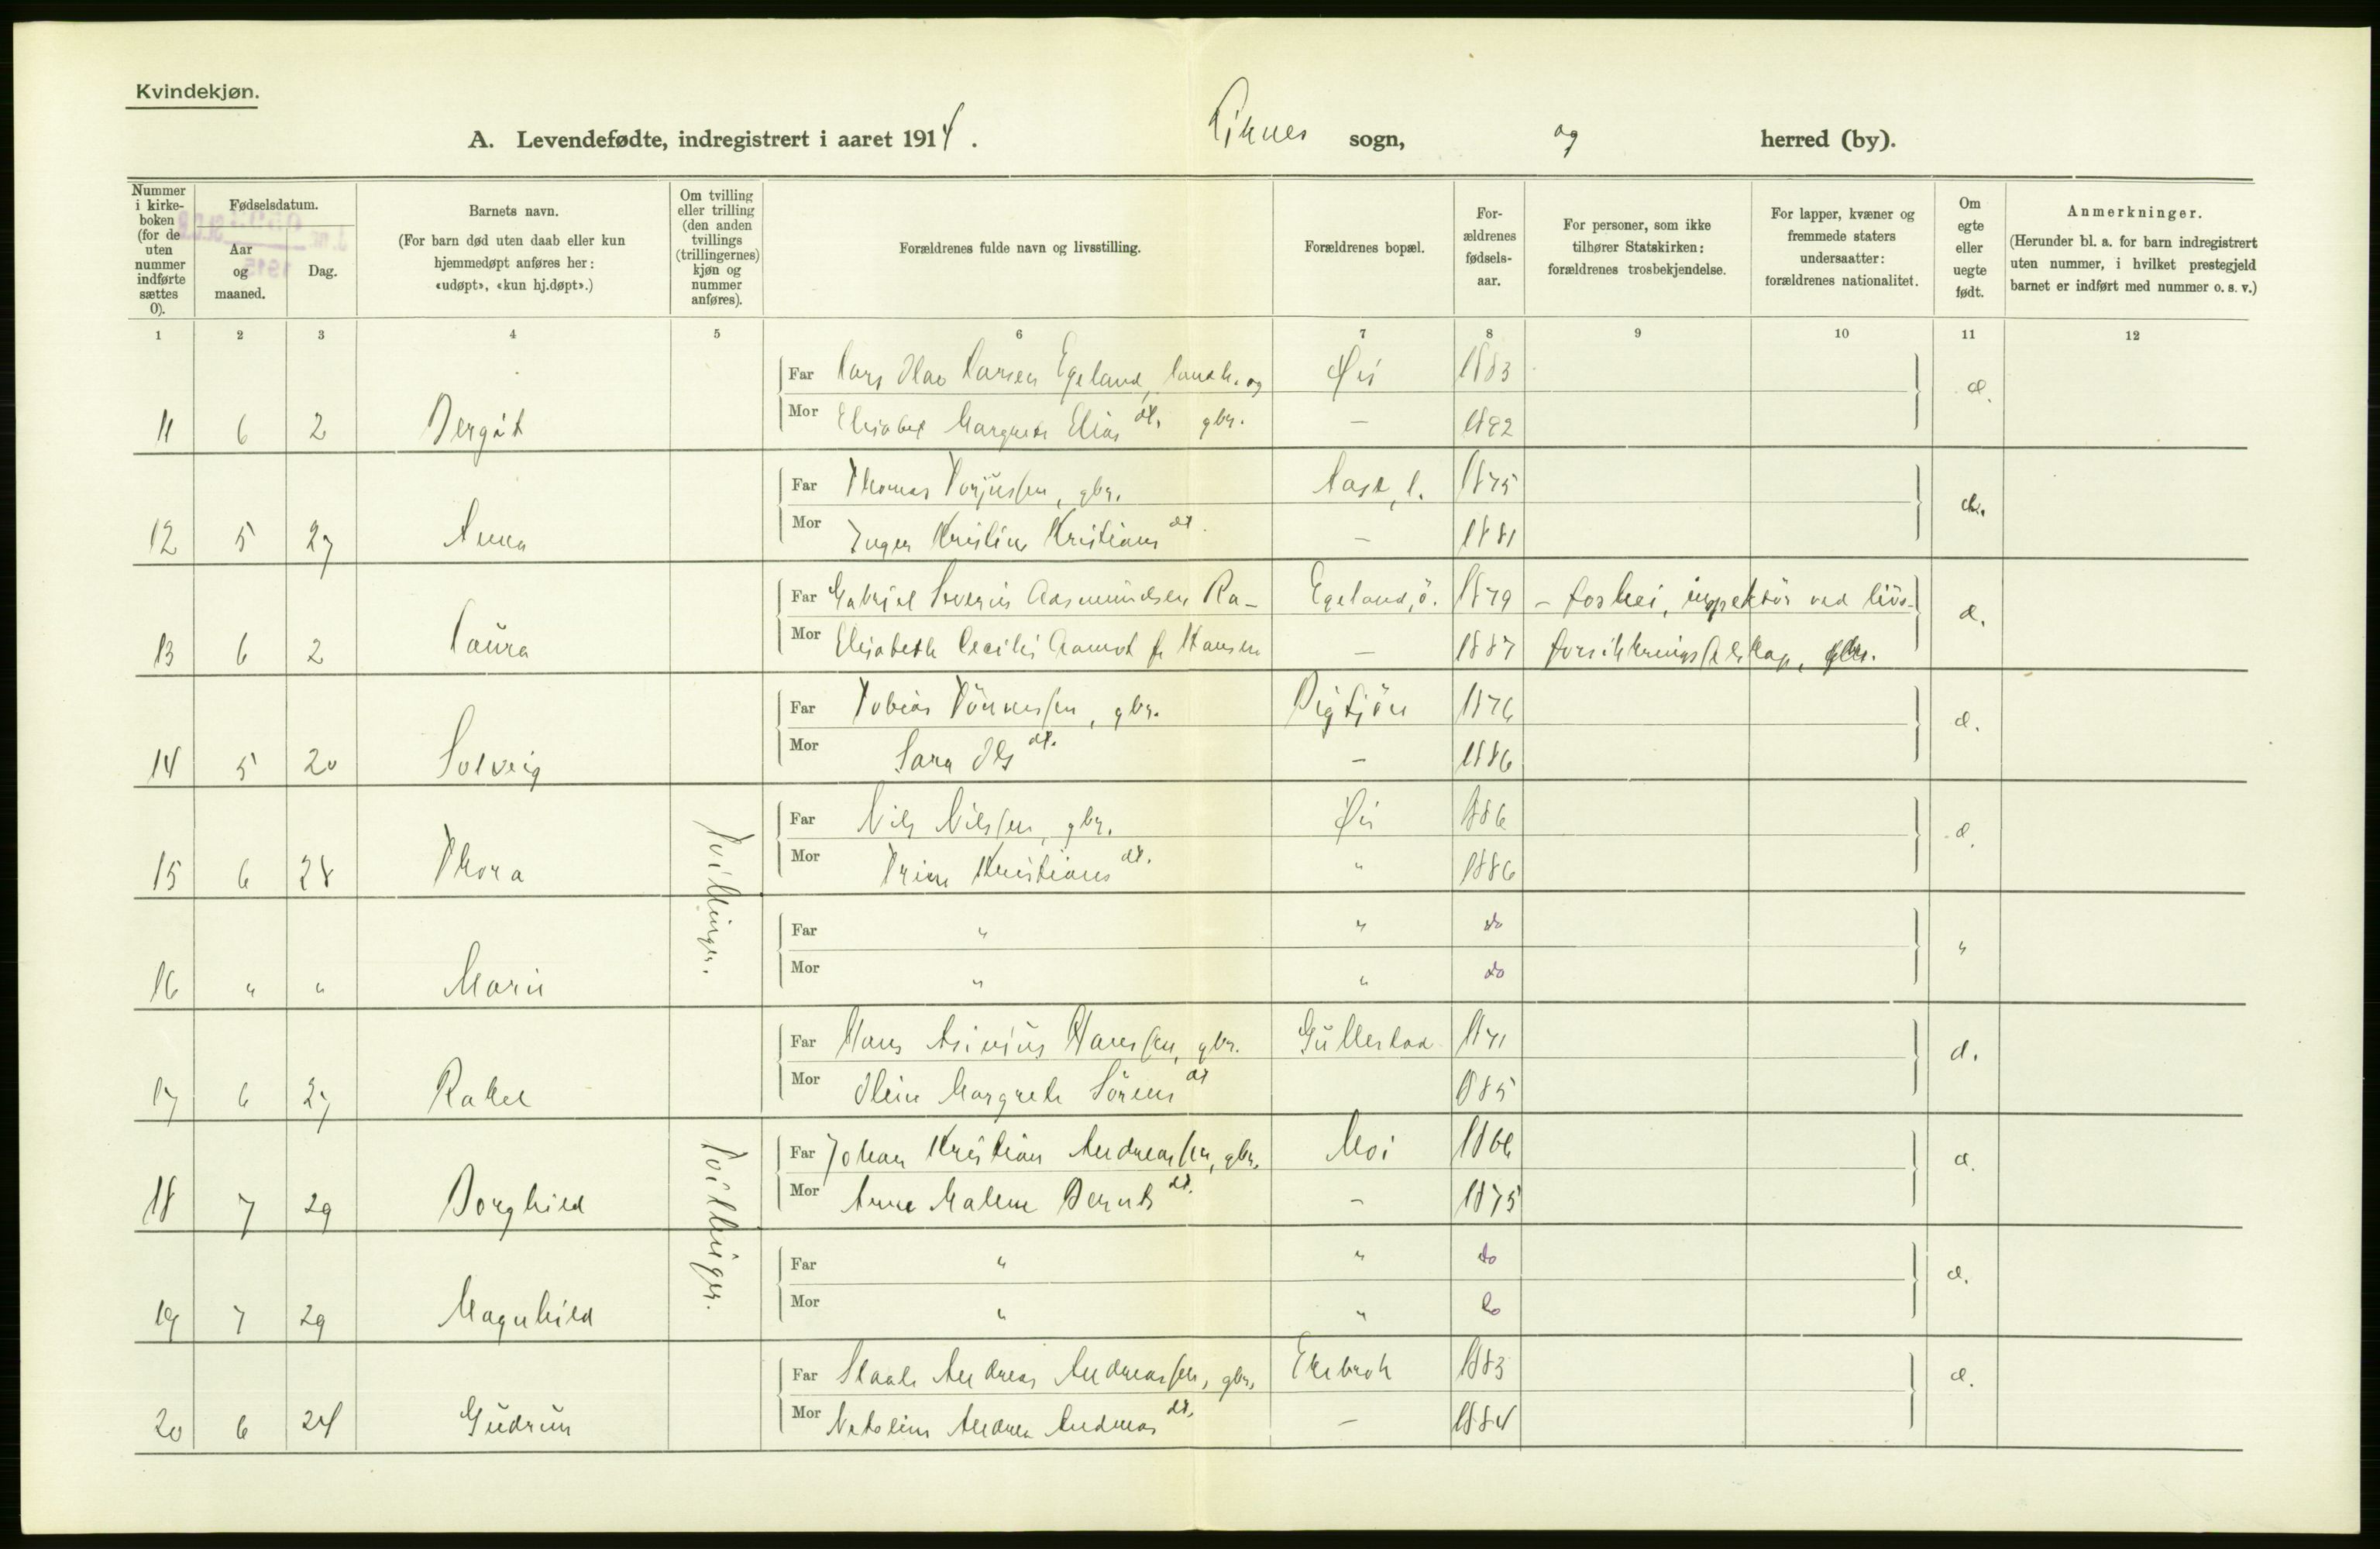 Kvindekjøn.
A. Levendefødte, indregistrert i aaret 1914. sogn, og herred (by).
Nummer i kirkeboken (for de uten nummer indførte sættes 0).
Fødselsdatum.
Aar og maaned.
Dag.
Barnets navn.
(For barn død uten daab eller kun hjemmedøpt anføres her: «udøpt», «kun hj.døpt».)
Om tvilling eller trilling (den anden tvillings (trillingernes) kjøn og nummer anføres).
Forældrenes fulde navn og livsstilling.
Forældrenes bopæl.
Forældrenes fødselsaar.
For personer, som ikke tilhører Statskirken: forældrenes trosbekjendelse.
For lapper, kvæner og fremmede staters undersaatter: forældrenes nationalitet.
Om egte eller uegte født.
Anmerkninger.
(Herunder bl. a. for barn indregistrert uten nummer, i hvilket prestegjeld barnet er indført med nummer o. s. v.)
1 2 3 4 5 6 7 8 9 10 11 12
Far Lars Olav Larsen Egeland, landh. og Øie 1883
11 6 2 Bergit Mor Elisabet Margrete Elias dt. gbr. — 1892
Far Thomas Torjussen, gbr. 1875
12 5 27 Anna Mor Inger Kristine Kristians dt. — 1881
Far Gabriel Severin Aasmundsen Ra- Egeland, ö. 1879 - foshei, inspektör ved livs- e.
13 6 2 Laura Mor Elisabeth Cecilie Aamot f. Hansen — 1887 forsikkringsselskap, gbr.
Far Tobias Tönnessen, gbr. 1876 e.
14 5 20 Solveig Mor Sara Ols dt. — 1886
Far Nils Nilssen, gbr. Øie 1886 e.
15 6 28 Thora Tvillinger. Mor Trine Kristians dt. " 1886
Far " " do "
16 " " Marie Mor " " do
Far Hans Asinius Hanssen, gbr. Gullestad 1871 e.
17 6 27 Rakel Mor Oline Margrete Sörens dt 1885
Far Johan Kristian Andreassen, gbr. Moi 1866 e.
18 7 29 Borghild Tvillinger. Mor Anna Malene Bernts dt. — 1875
Far " " do e.
19 7 29 Magnhild Mor " " do
Far Staale Andreas Andreassen, gbr. Ekebrok 1883 e.
20 6 24 Gudrun Mor Natoline Andrea Andreas dt. — 1884